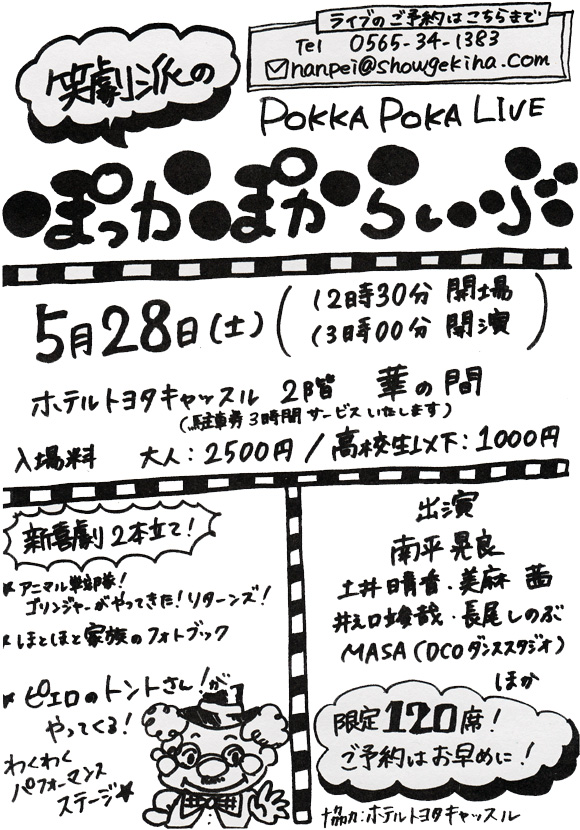 ライブのご予約はこちらまで
Tel 0565-34-1383
nanpei@showgekiha.com
笑劇派の
POKKA POKA LIVE
ぽっかぽからいぶ
5月28日(土)
(12時30分 開場
13時00分 開演)
ホテルトヨタキャッスル 2階 華の間
(駐車券3時間サービスいたします)
入場料 大人:2500円/高校生以下:1000円
新喜劇2本立て!
アニマル戦隊!
ゴリンジャーがやってきた!リターンズ!
ほとほと家族のフォトブック
ピエロのトントさん!が
やってくる!
わくわく
パフォーマンス
ステージ★
出演
南平晃良
土井晴香・美麻 茜
井元口峻哉・長尾しのぶ
MASA(OCOダンススタジオ)
ほか
限定120席!
ご予約はお早めに!
協力:ホテルトヨタキャッスル